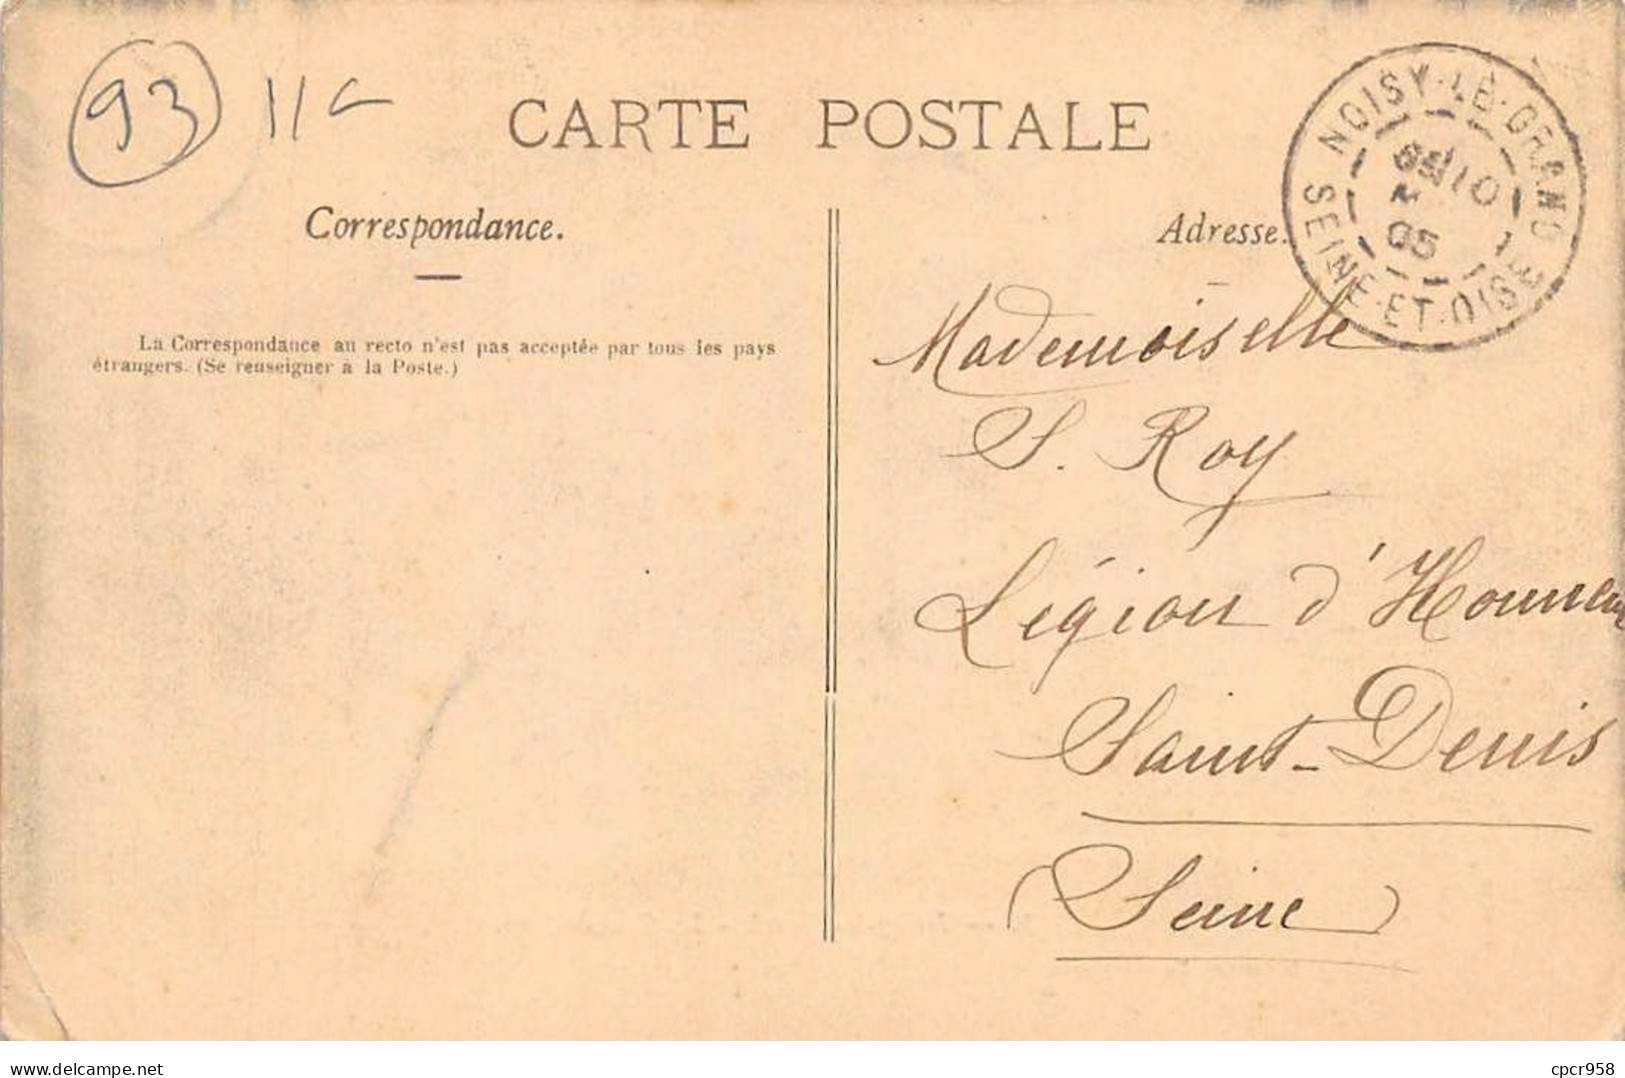 93 11c
CARTE POSTALE
Correspondance.
La Correspondance au recto n'est pas acceptée par tous les pays
étrangers. (Se renseigner à la Poste.)
Adresse.
NOISY-LE-GRAND
SEINE-ET-OISE
05
Mademoiselle
S. Roy
Légion d'Honneur
Saint-Denis
(Seine)
www.delcampe.net
cpcr958